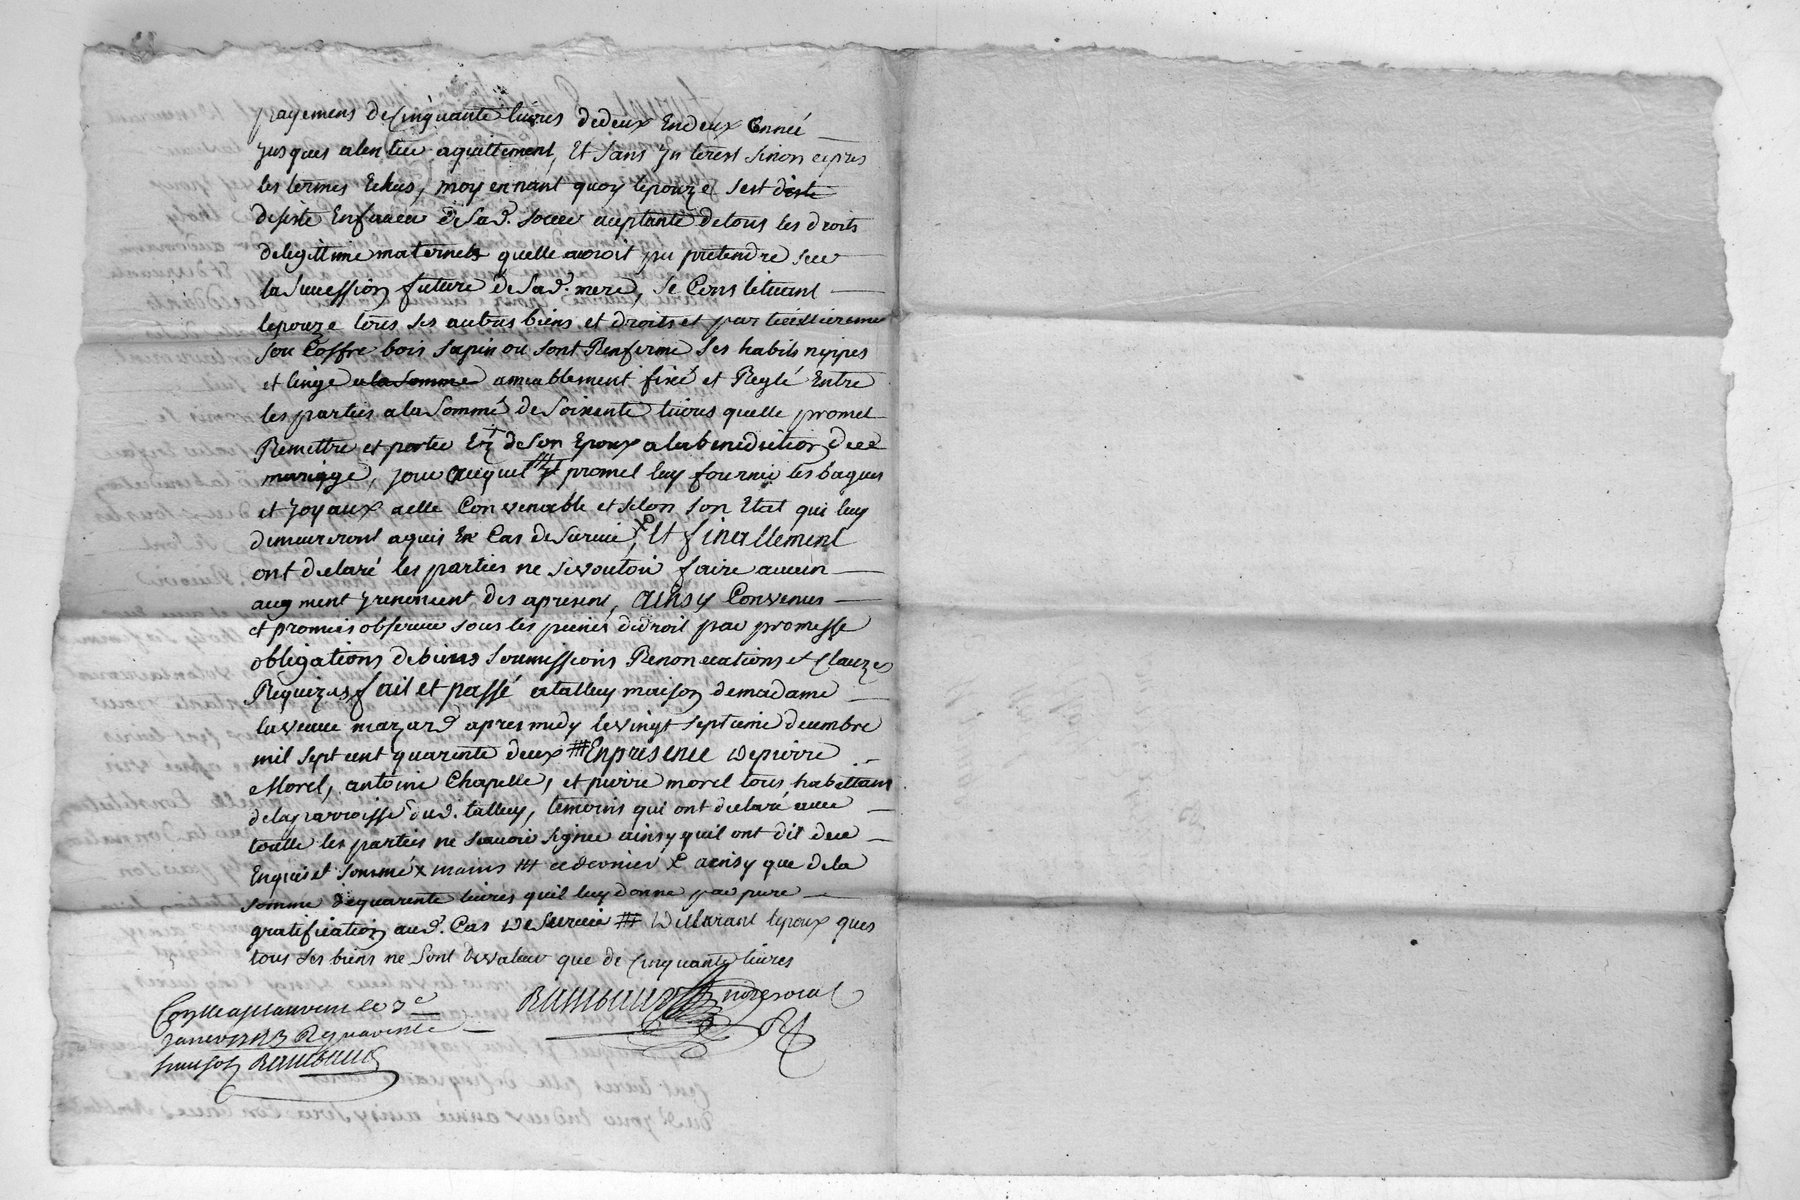 payemens de Cinquante livres de deux En deux année
jusques a lentier aquittement, Et sans Interest sinon apres
les termes Echus, moyennant quoy lepouze sest diste
desisté En faveur de Sad. soeur aceptante de tous les droits
de legittime maternels quelle auroit pu pretendre sur
la Sucession future de Sad. mere, se Constituant
lepouze tous ses autres biens et droits et particullierement
son Coffre bois sapin ou sont Renfermé ses habits nippes
et linge a la somme amiablement fixé et Reglé Entre
les parties a la Somme de Soixente livres quelle promet
Remettre et porter de Son Epoux a la benediction de
mariage, jour auquel Il promet luy fournir les bagues
et joyaux a elle Convenable et selon son Etat qui luy
demeureront aquis En Cas de Survie, Et finallement
ont declaré les parties ne se vouloir faire aucun
augment y renoncent des apresent, ainsy Convenus
et promis observer sous les peines de droit par promesse
obligations de biens soumissions Renonciations et Clauzes
Requizes fait et passé a talluy maison de madame
la veuve mazard apres midy le vingt septieme decembre
mil sept cent quarente deux En presence de pierre
Morel, antoine Chapelle, et pierre morel tous habittans
de la parroisse dud. talluy, temoins qui ont declaré avec
toutte les parties ne scavoir signer ainsy quil ont dit de ce
Enquis et sommé x mains # ce dernier x ainsy que de la
somme de quarente livres quil luy donne par pure
gratification aud. Cas de Survie # declarant lepoux que
tous ses biens ne sont de valeur que de Cinquante livres
Conllé a st Lauvent le 3e
janvier 1743 R quarente
sous